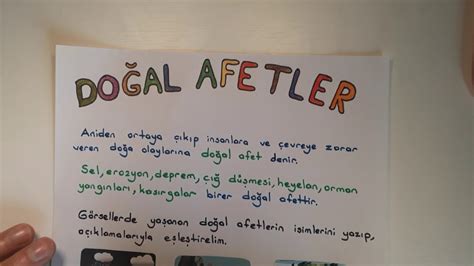 DOĞAL AFETLER
Aniden ortaya çıkıp insanlara ve çevreye zarar
veren doğa olaylarına doğal afet denir.
Sel, erozyon, deprem, çığ düşmesi, heyelan, orman
yangınları, kasırgalar birer doğal afettir.
Görsellerde yaşanan doğal afetlerin isimlerini yazıp,
açıklamalarıyla eşleştirelim.